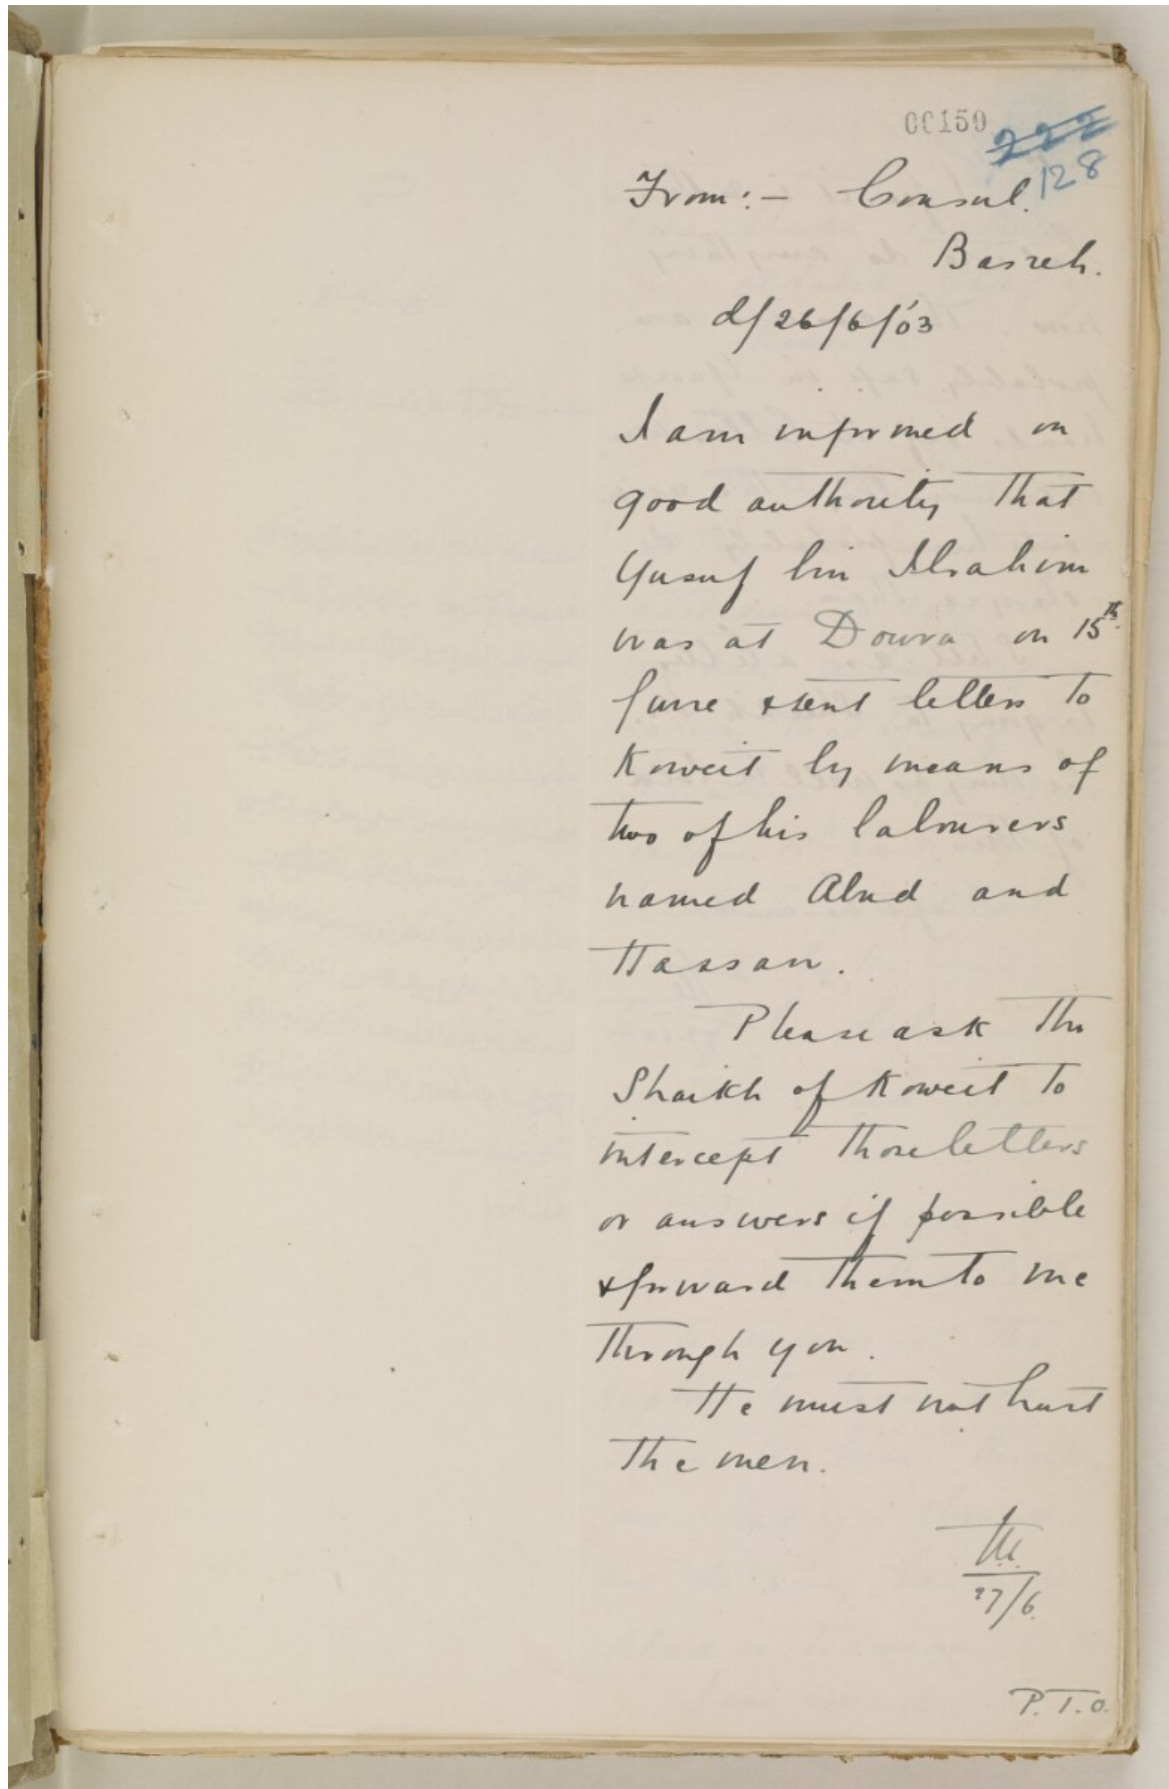 00150
222
128
From:- Consul.
Basreh.
d/26/6/'03
I am informed on
good authority that
Yusuf bin Ibrahim
was at Dowra on 15th
June & sent letters to
Koweit by means of
two of his labourers
named Abud and
Hassan.
Please ask the
Shaikh of Koweit to
intercept those letters
or answers if possible
& forward them to me
through you.
He must not hurt
the men.
27/6.
P.T.O.